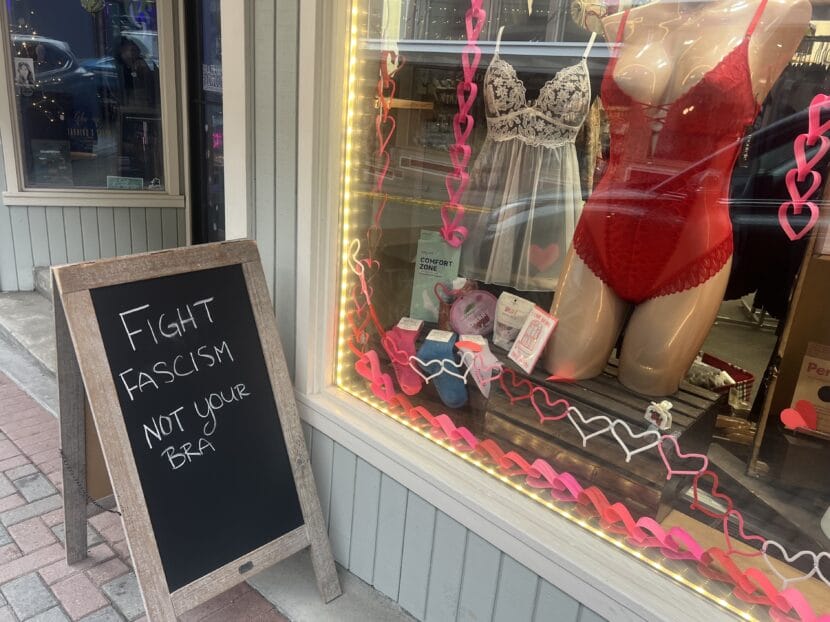 FIGHT
FASCISM
NOT YOUR
BRA
COMFORT
ZONE